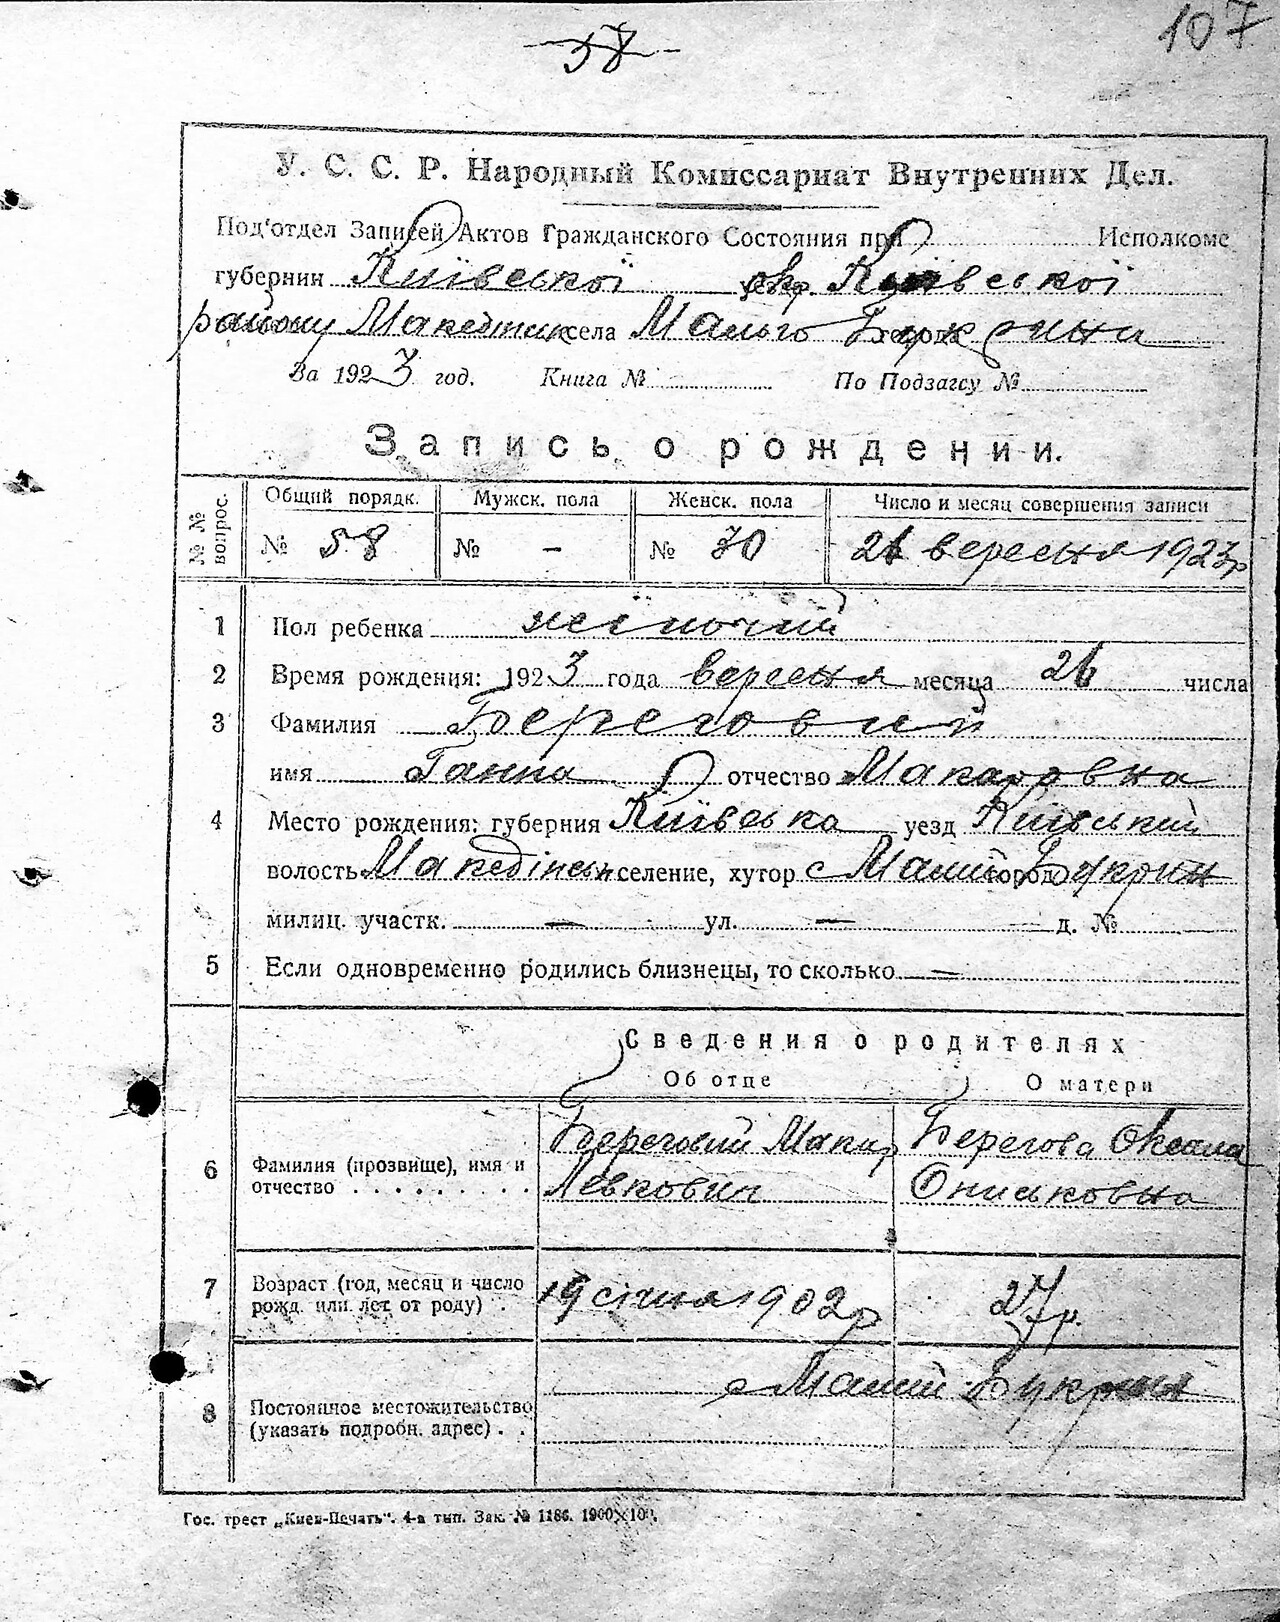 58
107
У. С. С. Р. Народный Комиссариат Внутренних Дел.
Под'отдел Записей Актов Гражданского Состояния при Исполкоме
губернии Київської окр. Київської
району села Малого Букрина
За 1923 год. Книга № По Подзагсу №
Запись о рождении.
№ № вопрос. Общий порядк. Мужск. пола Женск. пола Число и месяц совершения записи
№ 58 № - № 30 26 вересня 1923 р
1 Пол ребенка жіночий
2 Время рождения: 1923 года вересня месяца 26 числа
3 Фамилия Береговий
имя Ганна отчество Макаровна
4 Место рождения: губерния Київська уезд Київський
волость селение, хутор с Малий город Букрин
милиц. участк. — ул. — д. № —
5 Если одновременно родились близнецы, то сколько —
Сведения о родителях
Об отце О матери
6 Фамилия (прозвище), имя и отчество . . . . . . . . .
Береговий Макар Левкович
Берегова Оксана Ониськовна
7 Возраст (год, месяц и число рожд. или лет от роду) .
19 січня 1902 р
27 р.
8 Постоянное местожительство (указать подробн. адрес) . .
с Малий Букрин
Гос. трест „Киев-Печать". 4-а тип. Зак. № 1186. 1900×100.